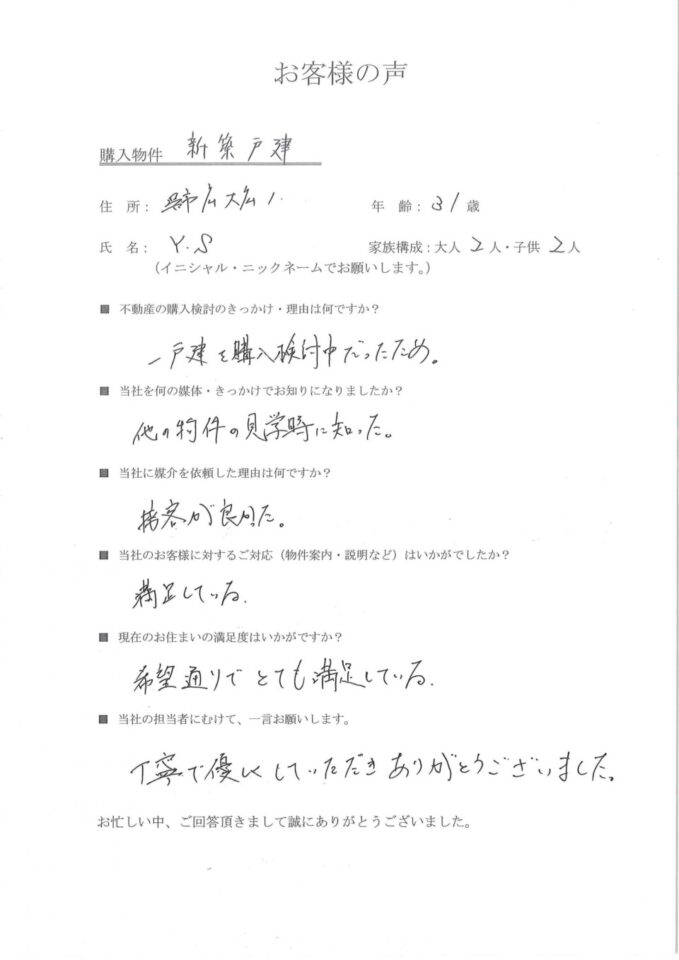 お客様の声
購入物件 新築戸建
住 所： 呉市広大広1. 年 齢：31歳
氏 名： Y.S 家族構成：大人 2人・子供 2人
（イニシャル・ニックネームでお願いします。）
■ 不動産の購入検討のきっかけ・理由は何ですか？
一戸建を購入検討中だったため。
■ 当社を何の媒体・きっかけでお知りになりましたか？
他の物件の見学時に知った。
■ 当社に媒介を依頼した理由は何ですか？
接客が良かった。
■ 当社のお客様に対するご対応（物件案内・説明など）はいかがでしたか？
満足している.
■ 現在のお住まいの満足度はいかがですか？
希望通りでとても満足している.
■ 当社の担当者にむけて、一言お願いします。
丁寧で優しくしていただきありがとうございました。
お忙しい中、ご回答頂きまして誠にありがとうございました。